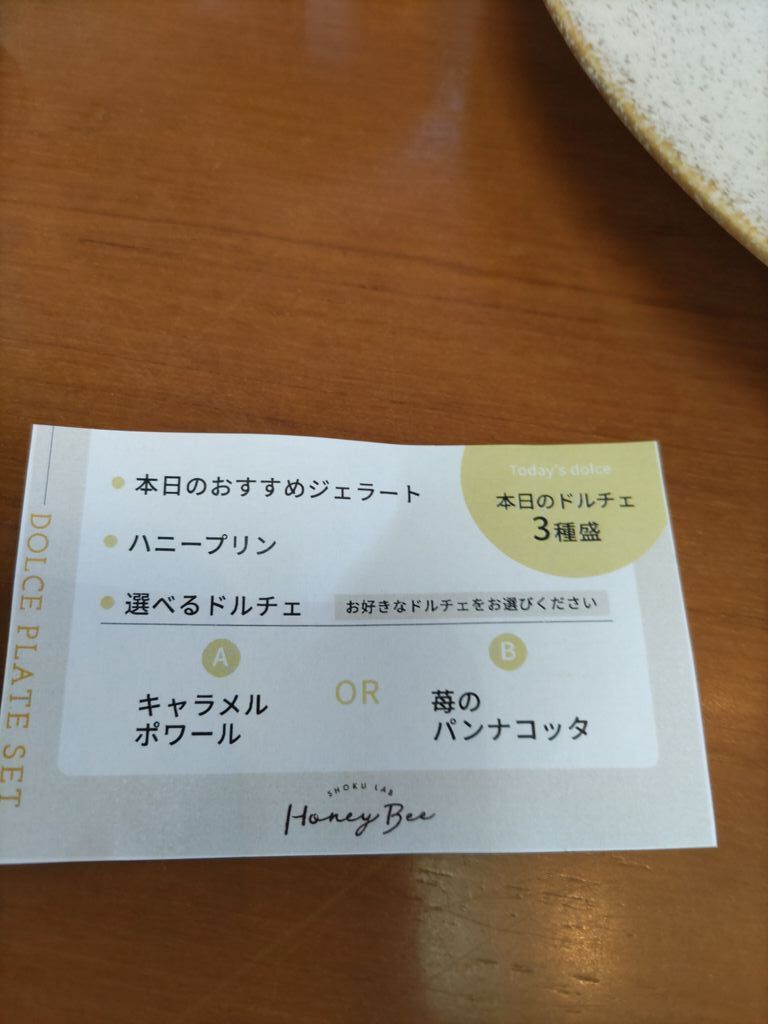 DOLCE PLATE SET
Today's dolce
本日のドルチェ
3種盛
本日のおすすめジェラート
ハニープリン
選べるドルチェ
お好きなドルチェをお選びください
A
キャラメル
ポワール
OR
B
苺の
パンナコッタ
SHOKU LAB
Honey Bee